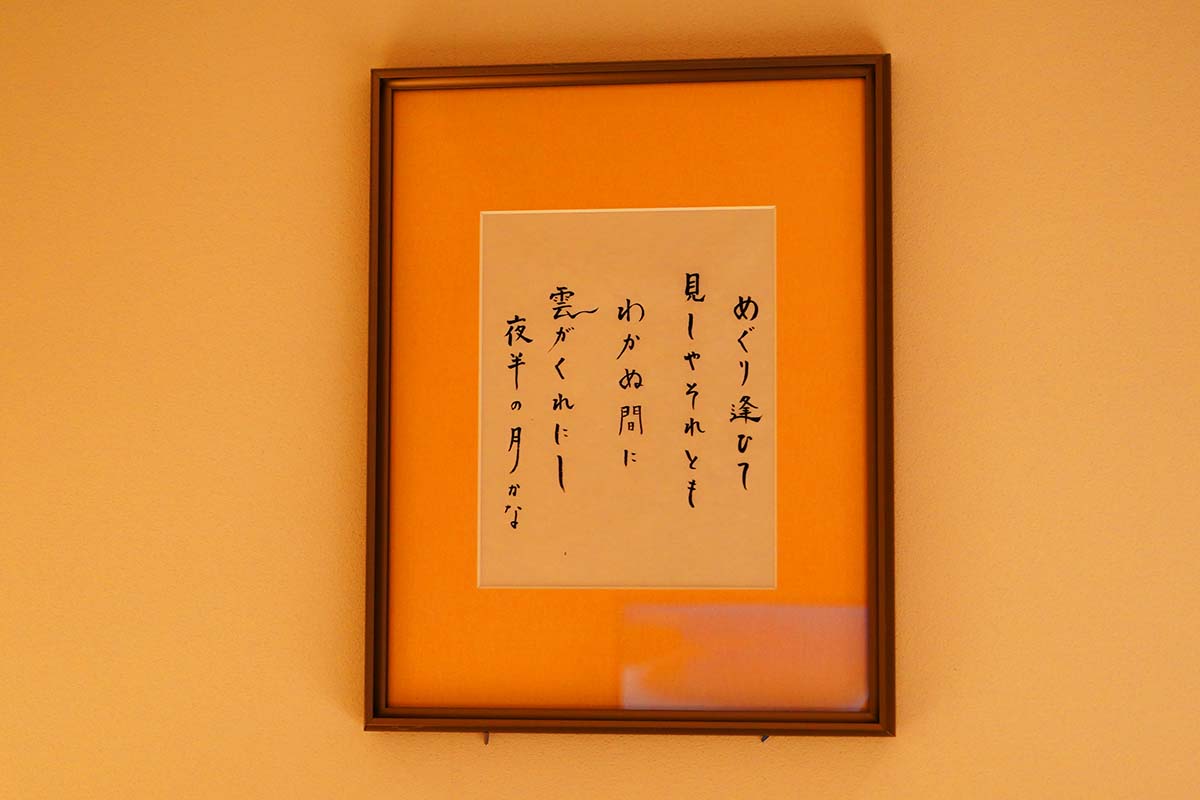 めぐり逢ひて
見しやそれとも
わかぬ間に
雲がくれにし
夜半の月かな